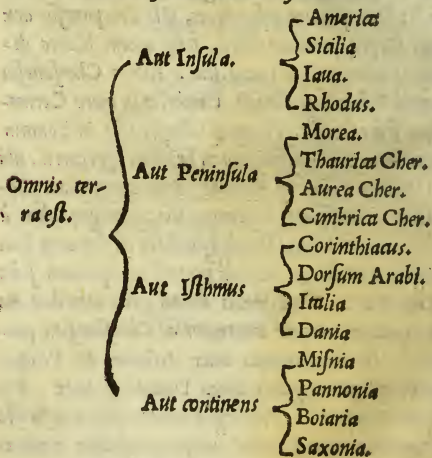 Omnis ter-
ra est.
Aut Inſula.
Americæ
Sicilia
Iaua.
Rhodus.
Aut Peninſula
Morea.
Thauricæ Cher.
Aurea Cher.
Cimbricæ Cher.
Aut Iſthmus
Corinthiacus.
Dorſum Arabl.
Italia
Dania
Aut continens
Miſnia
Pannonia
Boiaria
Saxonia.